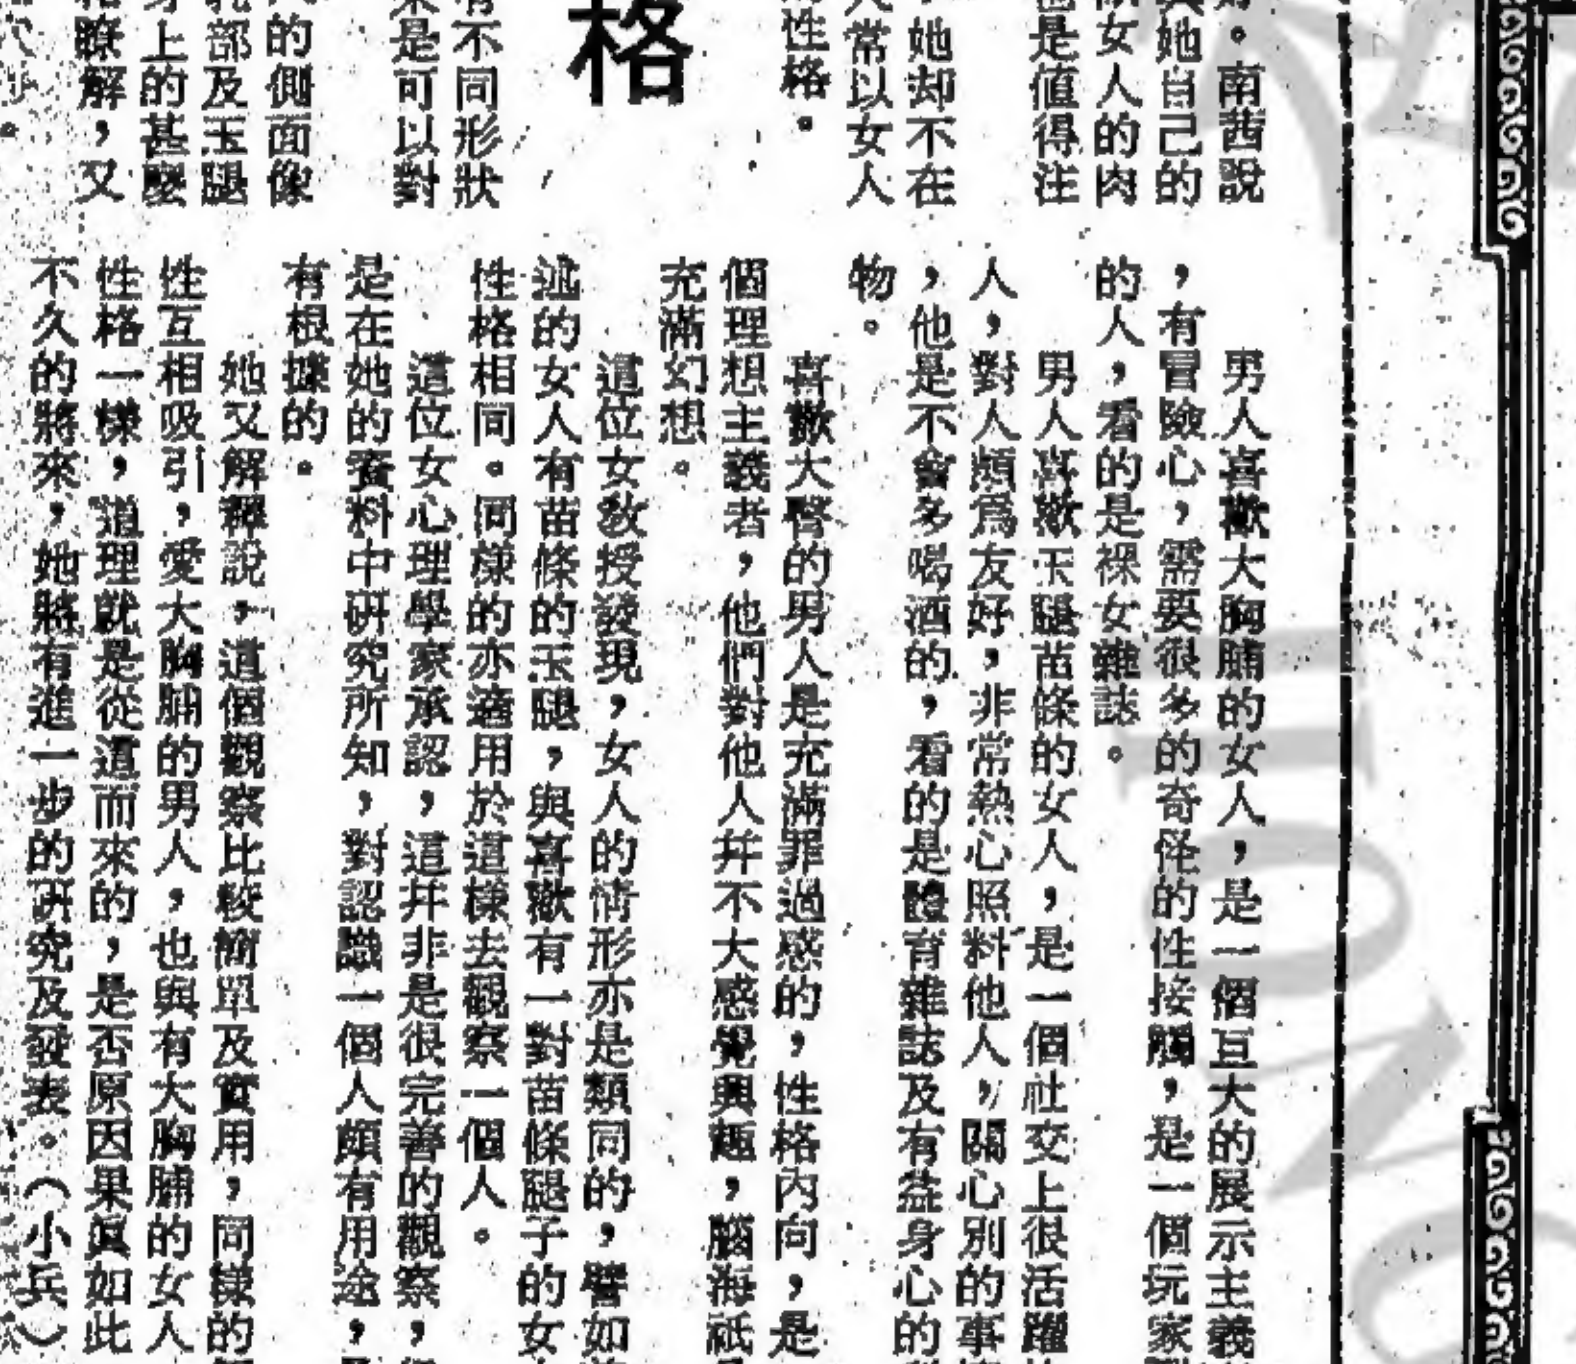 好。南茜說
她自己的
女人的肉
是值得注
她却不在
常以女人
性格。
格
有不同形狀
是可以對
的側面像
部及玉腿
身上的甚麼
瞭解，又
男人喜歡大胸脯的女人，是一個互大的展示主義
，有冒險心，需要很多的奇怪的性接觸，是一個玩家
的人，看的是裸女雜誌。
男人喜歡玉腿苗條的女人，是一個社交上很活躍
人，對人頗爲友好，非常熱心照料他人，關心別的事
，他是不會多喝酒的，看的是體育雜誌及有益身心的
物。
喜歡大臀的男人是充滿罪過感的，性格內向，是
個理想主義者，他們對他人幷不大感覺興趣，腦海祇
充滿幻想。
這位女敎授發現，女人的情形亦是類同的，譬如
述的女人有苗條的玉腿，與喜歡有一對苗條腿子的女
性格相同。同樣的亦適用於這樣去觀察一個人。
這位女心理學家承認，這幷非是很完善的觀察，
是在她的資料中研究所知，對認識一個人頗有用途，
有根據的。
她又解釋說，這個觀察比較簡單及實用，同樣的
性互相吸引，愛大胸脯的男人，也與有大胸脯的女人
性格一樣，道理就是從這而來的，是否原因果眞如此
不久的將來，她將有進一步的研究及發表。（小兵）